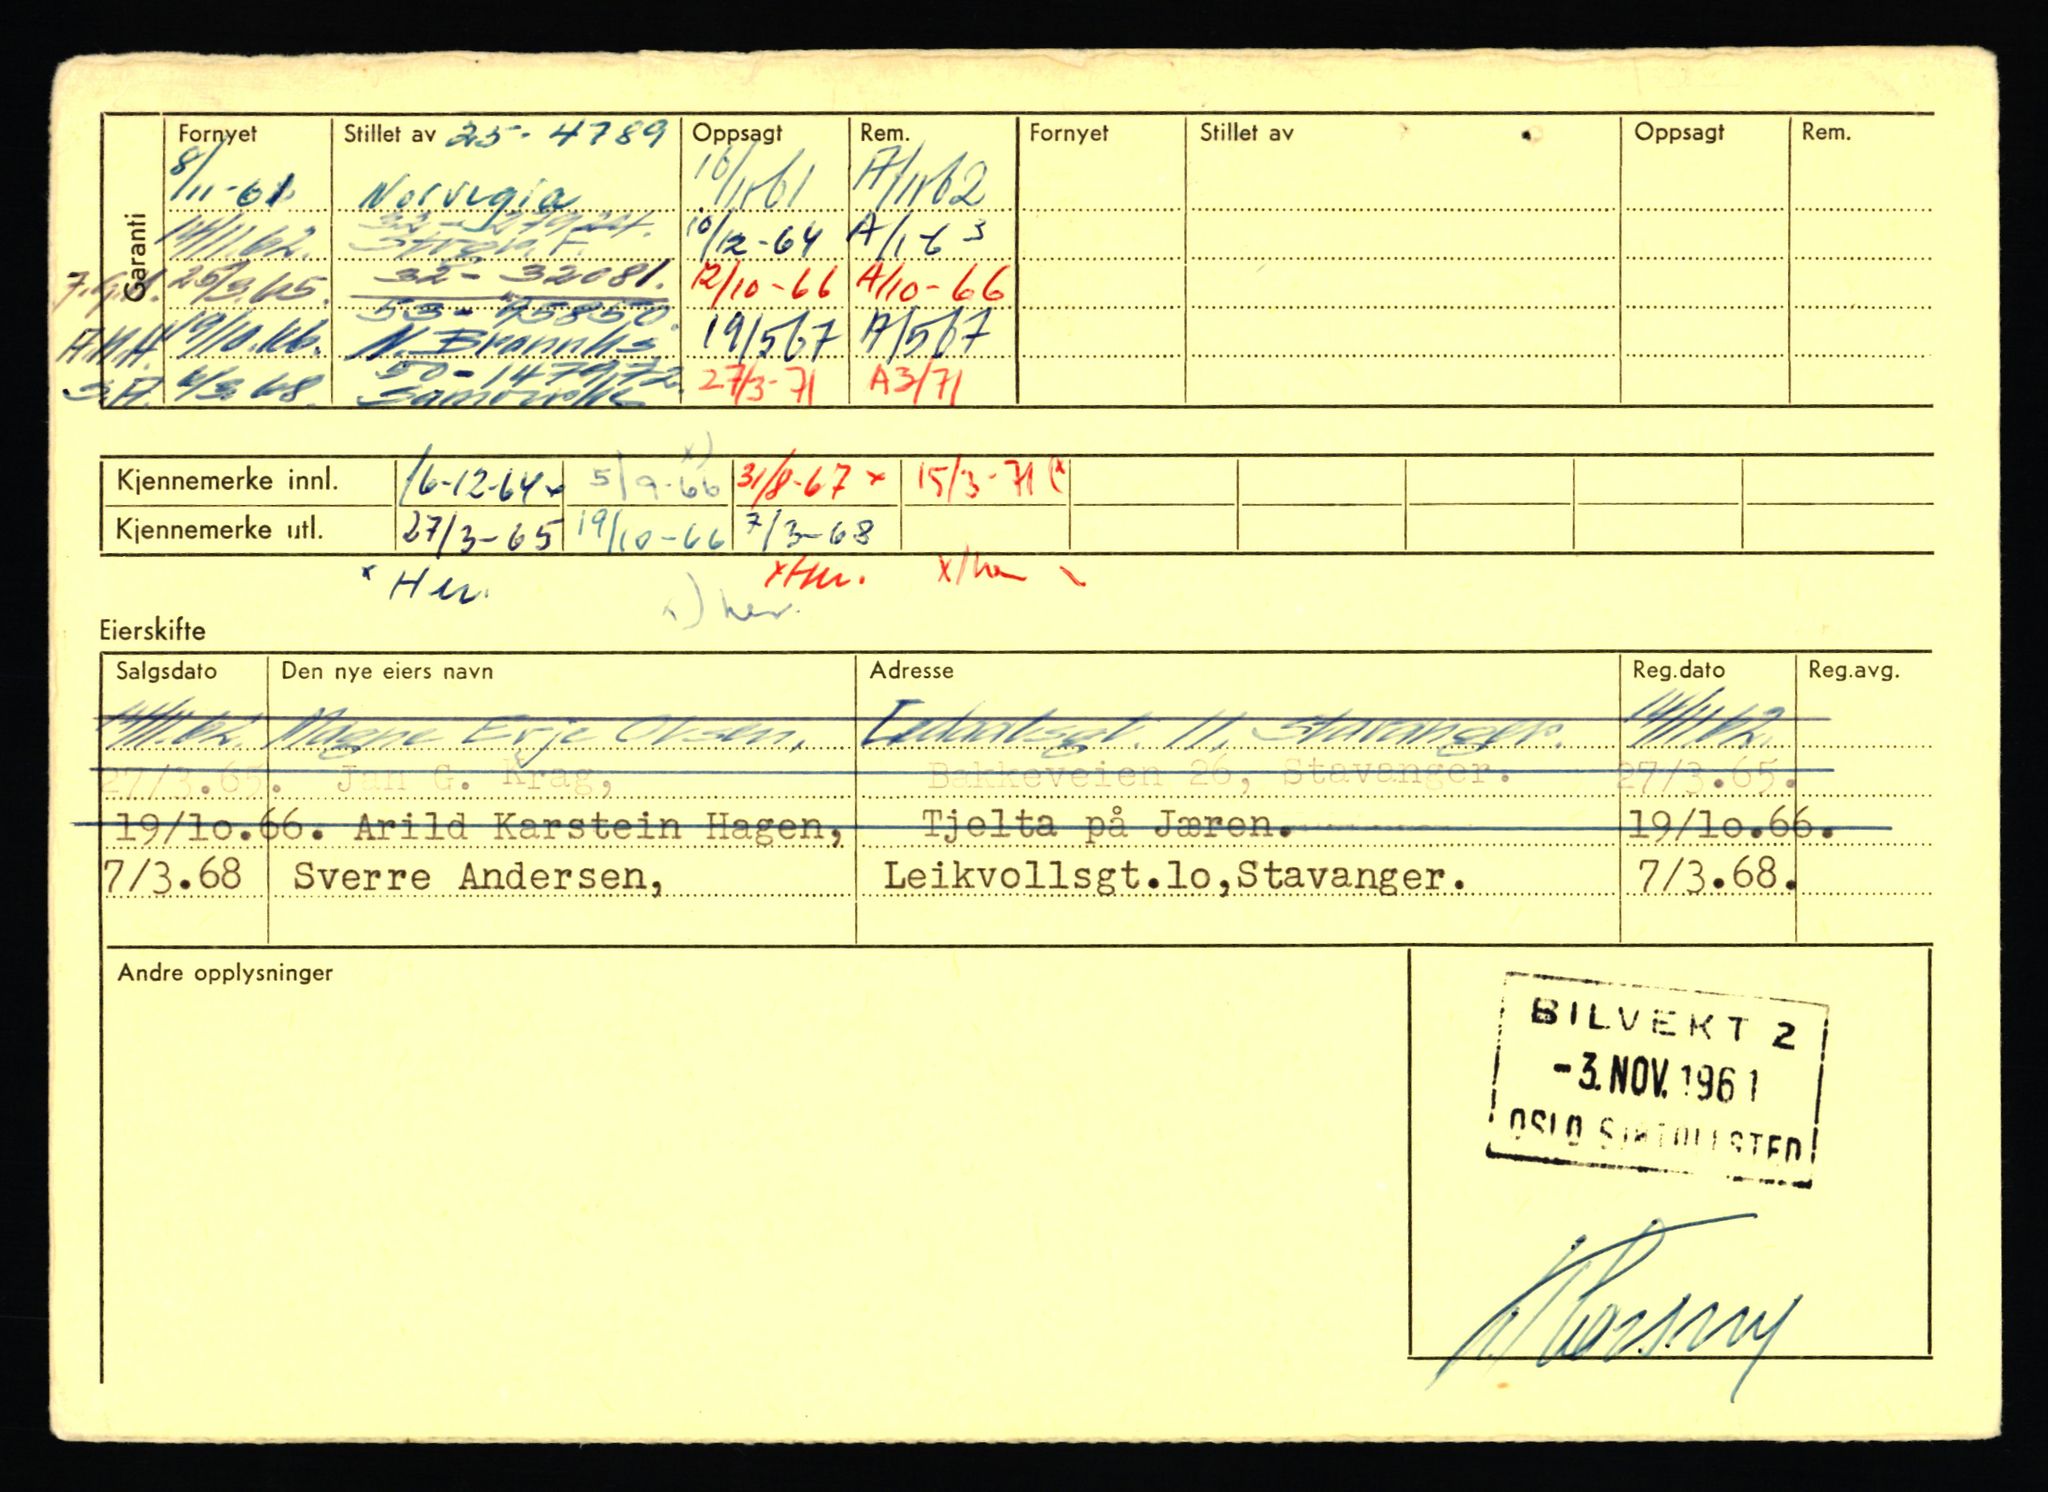 Garanti
Fornyet Stillet av 25-4789 Oppsagt Rem. Fornyet Stillet av Oppsagt Rem.
8/11-61 Norvegia 10/11-61 A/11-62
14/11.62. 10/12-64 A/1-63
25/3.65. 32-32081. 12/10-66 A/10-66
53-45850.
19/10.66. N. Brannks 19/5-67 A/5-67
50-147972.
6/3.68. 27/3-71 A3/71
Kjennemerke innl. 16-12-64 x 5/9-66 x) 31/8-67 x 15/3-71 (x
Kjennemerke utl. 27/3-65 19/10-66 7/3-68
x Her. x) her. x Her. x/her
Eierskifte
Salgsdato Den nye eiers navn Adresse Reg.dato Reg.avg.
14/11.62. Magne Olsen, 11, Stavanger. 14/11.62.
27/3.65. Jan G. Krag, Bakkeveien 26, Stavanger. 27/3.65.
19/10.66. Arild Karstein Hagen, Tjelta på Jæren. 19/10.66.
7/3.68 Sverre Andersen, Leikvollsgt.10,Stavanger. 7/3.68.
Andre opplysninger
BILVEKT 2
-3.NOV.1961
OSLO